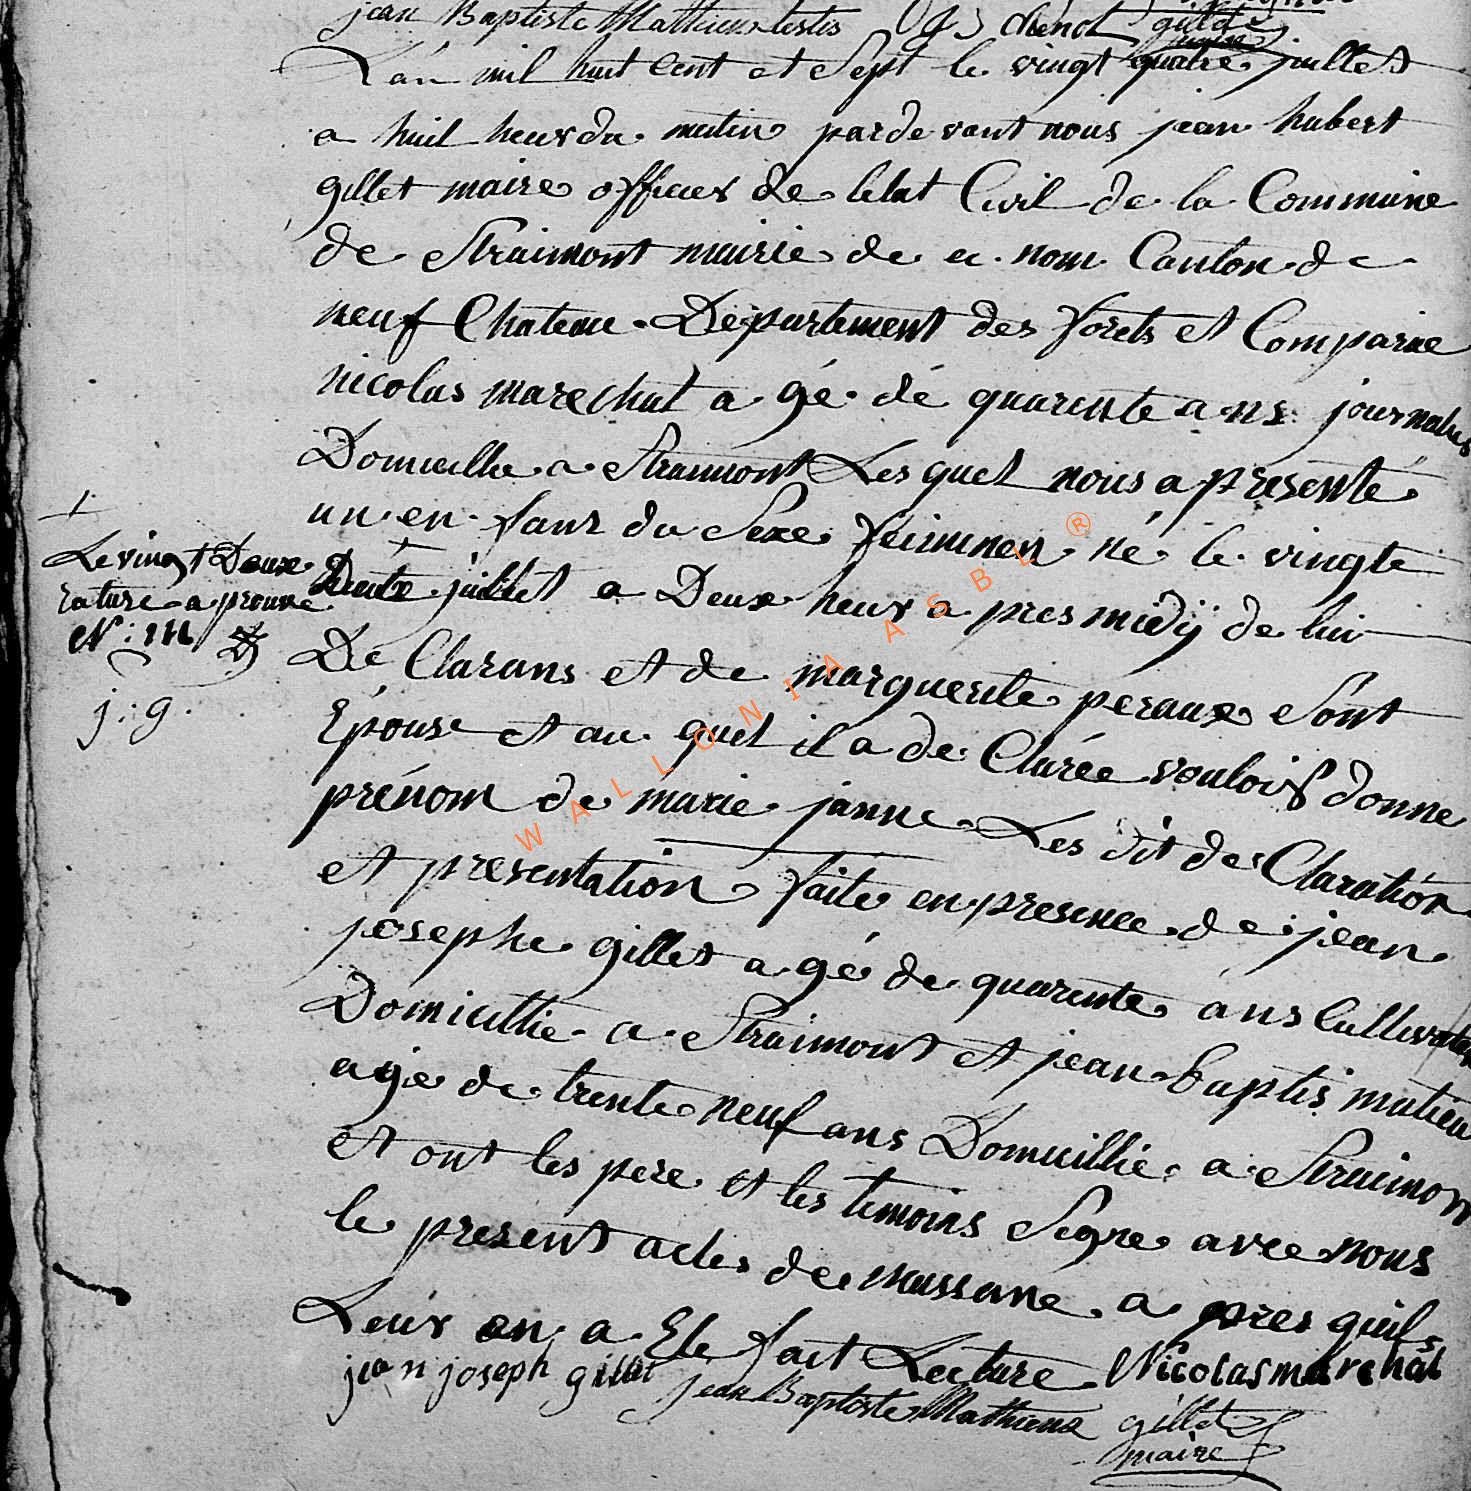 jean Baptiste Mathieux testis chenot gillet
maire
L'an mil huit cent et Sept le vingt quatre juillet
a huil heur du matin pardevant nous jean hubert
gillet maire officier de letat Civil de la Commune
de Straimont mairie de ce nom Canton de
neuf Chateau Departement des forets et Comparue
nicolas marechal a gé de quarente ans journalies
Domicillie a Straimont Les quel nous a presenté
un en fant du Sexe feiminen né le vingte
+
Le vingt Deux
rature a prouvé
N: m
j: g.
juillet a Deux heur a pres midÿ de lui
De Clarans et de marguerite peraux Sont
Epouse et au quel il a de Clarée vouloir donne
prénom de marie janne Les dit de Claration
et presentation faite en presence de jean
josephe gillet a gé de quarente ans Cultivateur
Domicillie a Straimont et jean baptis matieu
agé de trente neuf ans Domicillié a Straimont
et ont les pere et les temoins Segne avec nous
le present actes de nussane a pres quils
Leur en a Ete fait Lecture Nicolas marechal
jean joseph gillet jean Baptiste Mathieux gillet
maire
WALLONIA ASBL ®